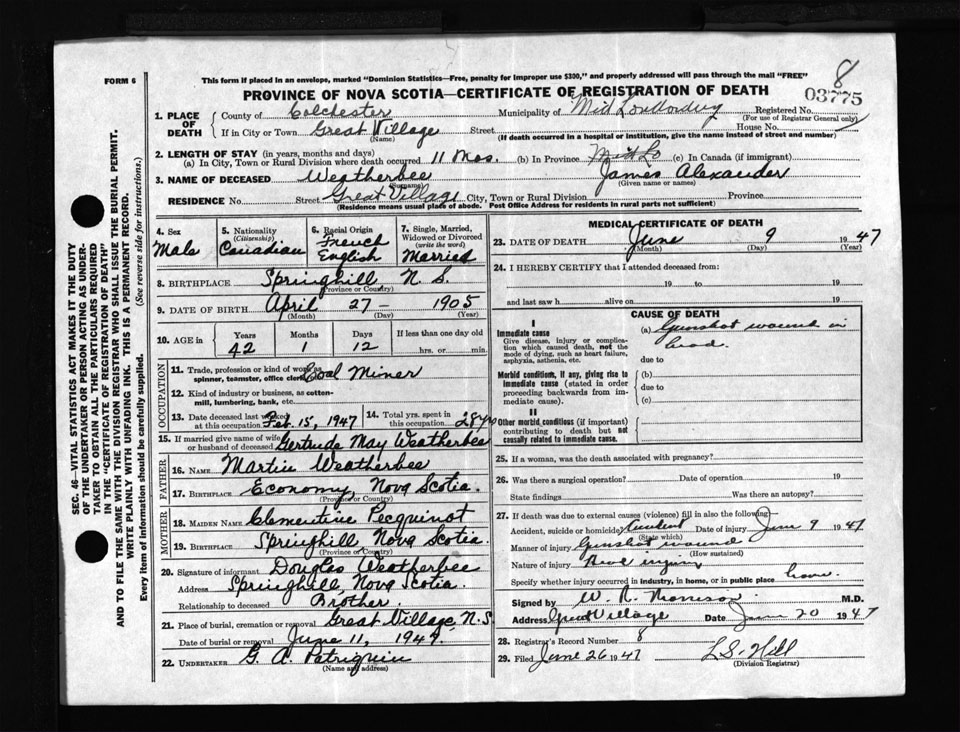 FORM 6
This form if placed in an envelope, marked "Dominion Statistics—Free, penalty for improper use $300," and properly addressed will pass through the mail "FREE"
8
PROVINCE OF NOVA SCOTIA—CERTIFICATE OF REGISTRATION OF DEATH
03775
1. PLACE OF DEATH
County of Colchester Municipality of Mid Londondery Registered No.
(For use of Registrar General only)
If in City or Town Great Village Street House No.
(Name) (If death occurred in a hospital or institution, give the name instead of street and number)
2. LENGTH OF STAY (in years, months and days)
(a) In City, Town or Rural Division where death occurred 11 Mos. (b) In Province (c) In Canada (if immigrant)
3. NAME OF DECEASED Weatherbee James Alexander
(Surname) (Given name or names)
RESIDENCE No. Street Great Village City, Town or Rural Division Province
(Residence means usual place of abode. Post Office Address for residents in rural parts not sufficient)
4. Sex Male
5. Nationality (Citizenship) Canadian
6. Racial Origin French English
7. Single, Married, Widowed or Divorced (write the word) Married
8. BIRTHPLACE Springhill N.S.
(Province or Country)
9. DATE OF BIRTH April 27- 1905
(Month) (Day) (Year)
10. AGE in Years 42 Months 1 Days 12 If less than one day old hrs. or min.
OCCUPATION
11. Trade, profession or kind of work as spinner, teamster, office clerk Coal Miner
12. Kind of industry or business, as cotton-mill, lumbering, bank, etc.
13. Date deceased last worked at this occupation Feb. 15, 1947
14. Total yrs. spent in this occupation 28
15. If married give name of wife or husband of deceased Gertrude May Weatherbee
FATHER
16. NAME Martin Weatherbee
17. BIRTHPLACE Economy, Nova Scotia.
(Province or Country)
MOTHER
18. MAIDEN NAME Clementine Pecquinot
19. BIRTHPLACE Springhill Nova Scotia.
(Province or Country)
20. Signature of informant Douglas Weatherbee
Address Springhill, Nova Scotia.
Relationship to deceased Brother
21. Place of burial, cremation or removal Great Village, N.S.
Date of burial or removal June 11, 1947.
22. UNDERTAKER G. A. Patriquin
(Name and address)
MEDICAL CERTIFICATE OF DEATH
23. DATE OF DEATH June 9 1947
(Month) (Day) (Year)
24. I HEREBY CERTIFY that I attended deceased from:
19 to 19
and last saw h alive on 19
CAUSE OF DEATH
I
Immediate cause
Give disease, injury or complication which caused death, not the mode of dying, such as heart failure, asphyxia, asthenia, etc.
(a) Gunshot wound in head.
due to
Morbid conditions, if any, giving rise to immediate cause (stated in order proceeding backwards from immediate cause).
(b)
due to
(c)
II
Other morbid conditions (if important) contributing to death but not causally related to immediate cause.
25. If a woman, was the death associated with pregnancy?
26. Was there a surgical operation? Date of operation 19
State findings Was there an autopsy?
27. If death was due to external causes (violence) fill in also the following—
Accident, suicide or homicide? Accident Date of injury June 9 1947
(State which)
Manner of injury Gunshot wound
(How sustained)
Nature of injury
Specify whether injury occurred in industry, in home, or in public place home.
Signed by W. R. Morrison M.D.
Address Great Village Date June 20 1947
28. Registrar's Record Number 8
29. Filed June 26 1947 L S. Hill
(Division Registrar)
SEC. 46—VITAL STATISTICS ACT MAKES IT THE DUTY
OF THE UNDERTAKER OR PERSON ACTING AS UNDER-
TAKER TO OBTAIN ALL THE PARTICULARS REQUIRED
IN THE "CERTIFICATE OF REGISTRATION OF DEATH"
AND TO FILE THE SAME WITH THE DIVISION REGISTRAR WHO SHALL ISSUE THE BURIAL PERMIT.
WRITE PLAINLY WITH UNFADING INK. THIS IS A PERMANENT RECORD.
Every item of information should be carefully supplied. (See reverse side for instructions.)